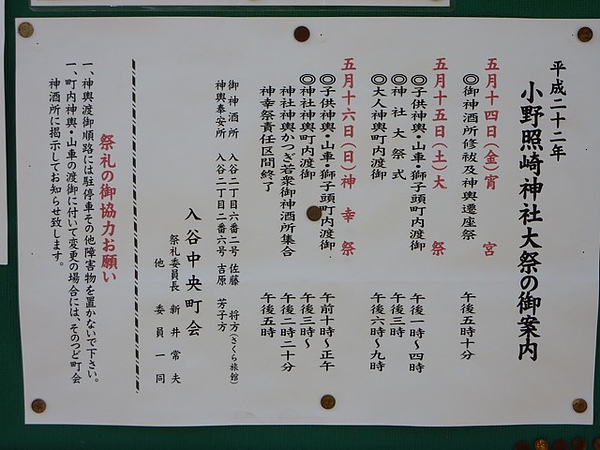 平成二十二年
小野照崎神社大祭の御案内
五月十四日(金)宵宮
◎御神酒所修祓及神輿遷座祭 午後五時十分
五月十五日(土)大祭
◎子供神輿・山車・獅子頭町内渡御 午後一時〜四時
◎神社大祭式 午後三時
◎大人神輿町内渡御 午後六時〜九時
五月十六日(日)神幸祭
◎子供神輿・山車・獅子頭町内渡御 午前十時〜正午
◎神社神輿町内渡御 午後三時〜
神社神輿かつぎ若衆御神酒所集合 午後二時二十分
神幸祭責任区間終了 午後五時
御神酒所 入谷二丁目六番二号 佐藤 将方(さくら旅館)
神輿奉安所 入谷二丁目二番六号 吉原 芳子方
入谷中央町会
祭礼委員長 新井常夫
他 委員一同
祭礼の御協力お願い
一、神輿渡御順路には駐停車その他障害物を置かないで下さい。
一、町内神輿・山車の渡御に付いて変更の場合には、そのつど町会
神酒所に掲示してお知らせ致します。